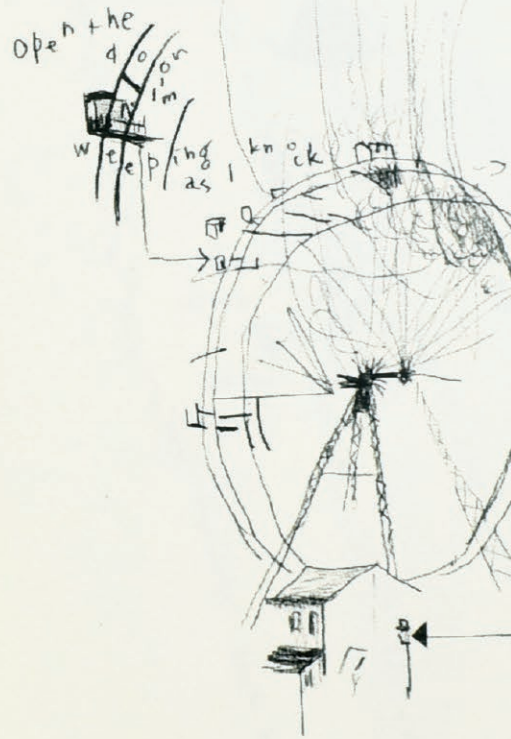 Open the
door
I'm
weeping
as I knock